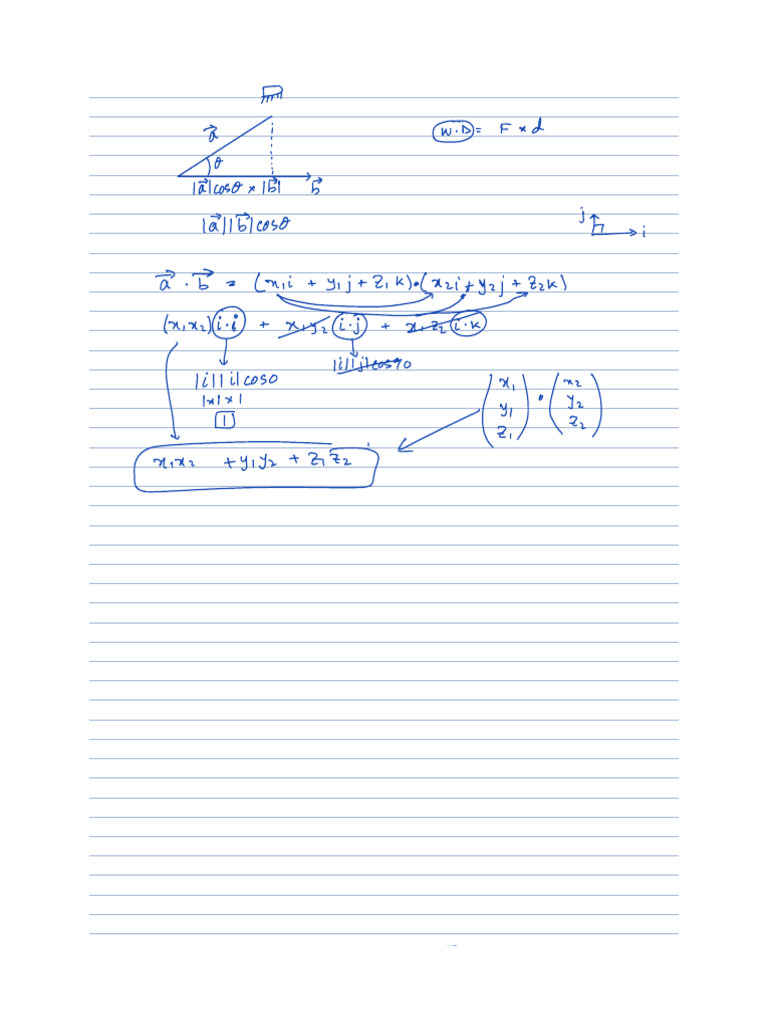 a⃗
W.D = F × d
θ
|a⃗|cosθ × |b⃗| b⃗
|a⃗||b⃗|cosθ
j
i
a⃗ . b⃗ = (x₁i + y₁j + z₁k)•(x₂i + y₂j + z₂k)
(x₁x₂) i·i + x₁y₂ i·j + x₁z₂ i·k
|i||j|cos90
|i||i|cos0
1×1×1
1
(x₁ y₁ z₁) • (x₂ y₂ z₂)
x₁x₂ + y₁y₂ + z₁z₂